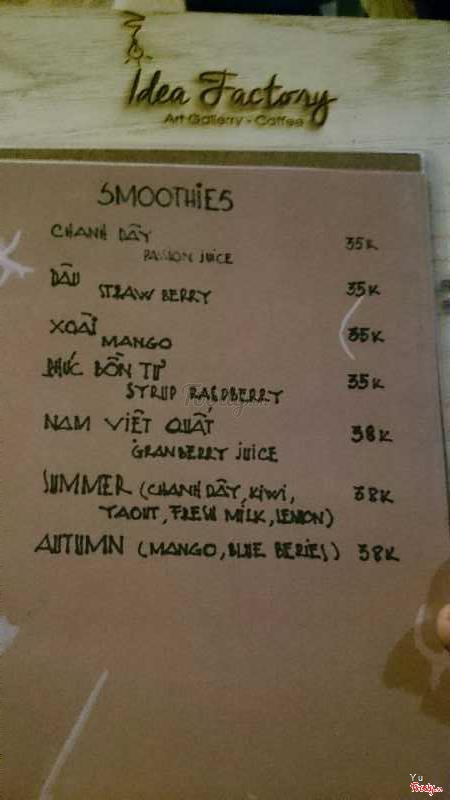 Idea Factory
Art Gallerry - Coffee
SMOOTHiES
CHANH DÂY 35K
PASSION JUICE
DÂU 35K
STRAW BERRY
XOÀI 35K
MANGO
PHÚC BỒN TỬ 35K
SYRUP RASPBERRY
NAM VIỆT QUẤT 38K
GRANBERRY JUICE
SUMMER (CHANH DÂY, KIWI, 38K
YAOUT, FRESH MILK, LEMON)
AUTUMN (MANGO, BLUE BERIES) 38K
Foody.vn
Yu
Foody.vn